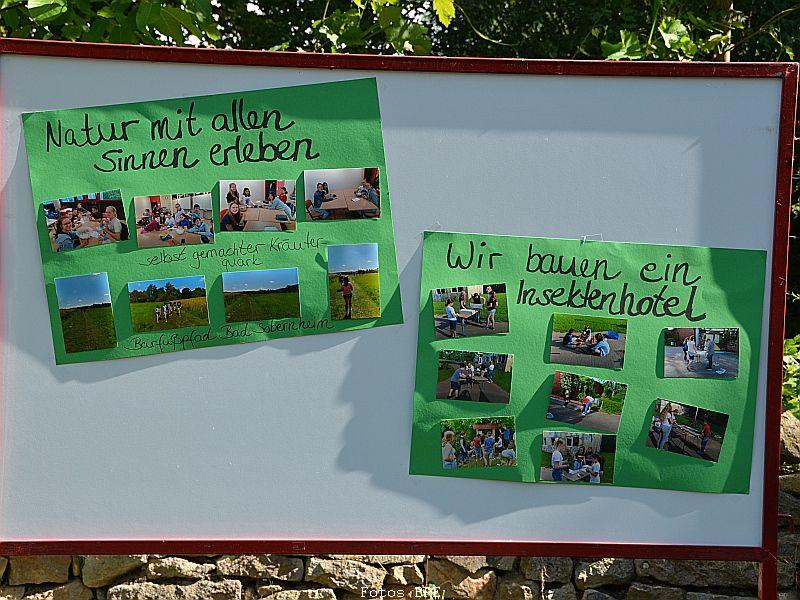 Natur mit allen
Sinnen erleben
selbst gemachter Kräuter-
quark
Barfußpfad Bad Sobernheim
Wir bauen ein
Insektenhotel